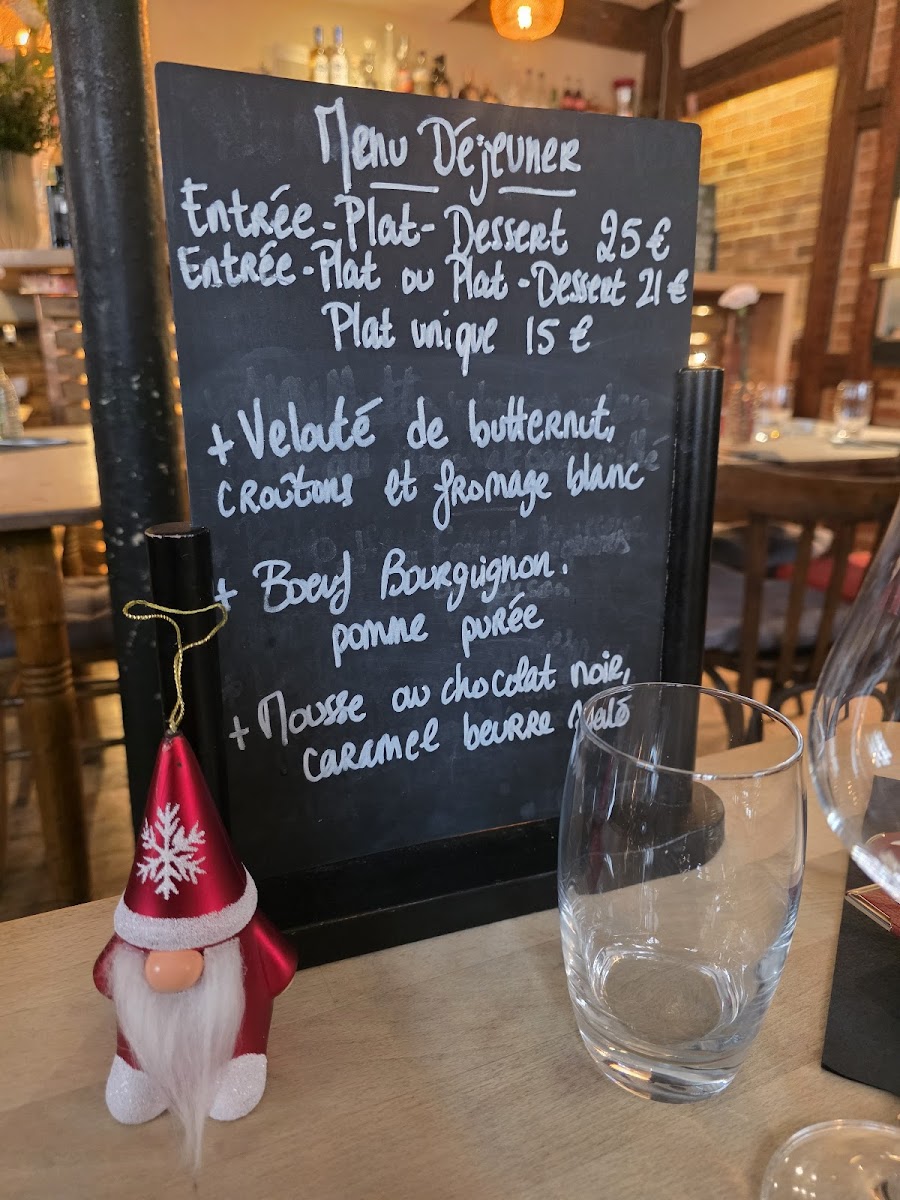 Menu Déjeuner
Entrée-Plat-Dessert 25€
Entrée-Plat ou Plat-Dessert 21€
Plat unique 15€
+ Velouté de butternut,
croûtons et fromage blanc
+ Boeuf Bourguignon.
pomme purée
+ Mousse au chocolat noir,
caramel beurre salé